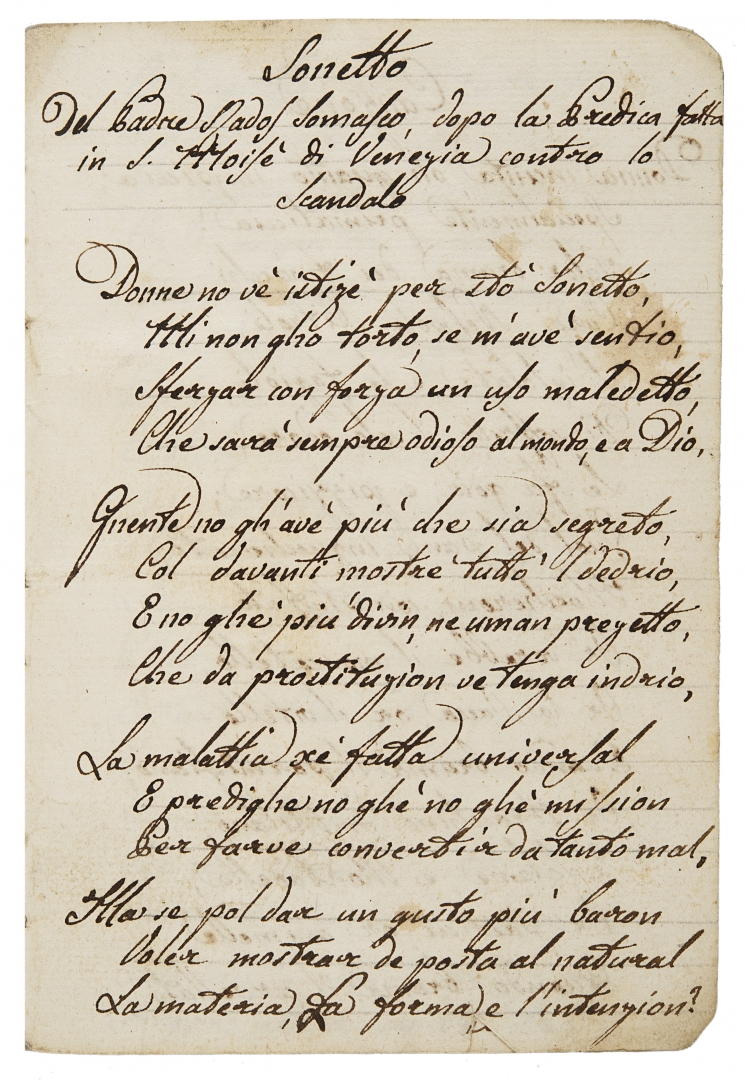 Sonetto
Del Padre Nados Somasco, dopo la Predica fatta
in S. Moisè di Venezia contro lo
Scandalo
Donne no vè istizè per stò Sonetto,
Mi non gho torto, se m'avè sentio,
Sferzar con forza un uso maledetto,
Che sarà sempre odioso al mondo, e a Dio,
Gnente no gh'avè più che sia segreto,
Col davanti mostrè tutto 'l dedrio,
E no ghè più divin, ne uman prezetto,
Che da prostituzion ve tenga indrio,
La malattia xè fatta universal
E predighe no ghè no ghè mission
Per farve convertir da tanto mal,
Ma se pol dar un gusto più baron
Voler mostrar de posta al natural
La materia, La forma, e l'intenzion?